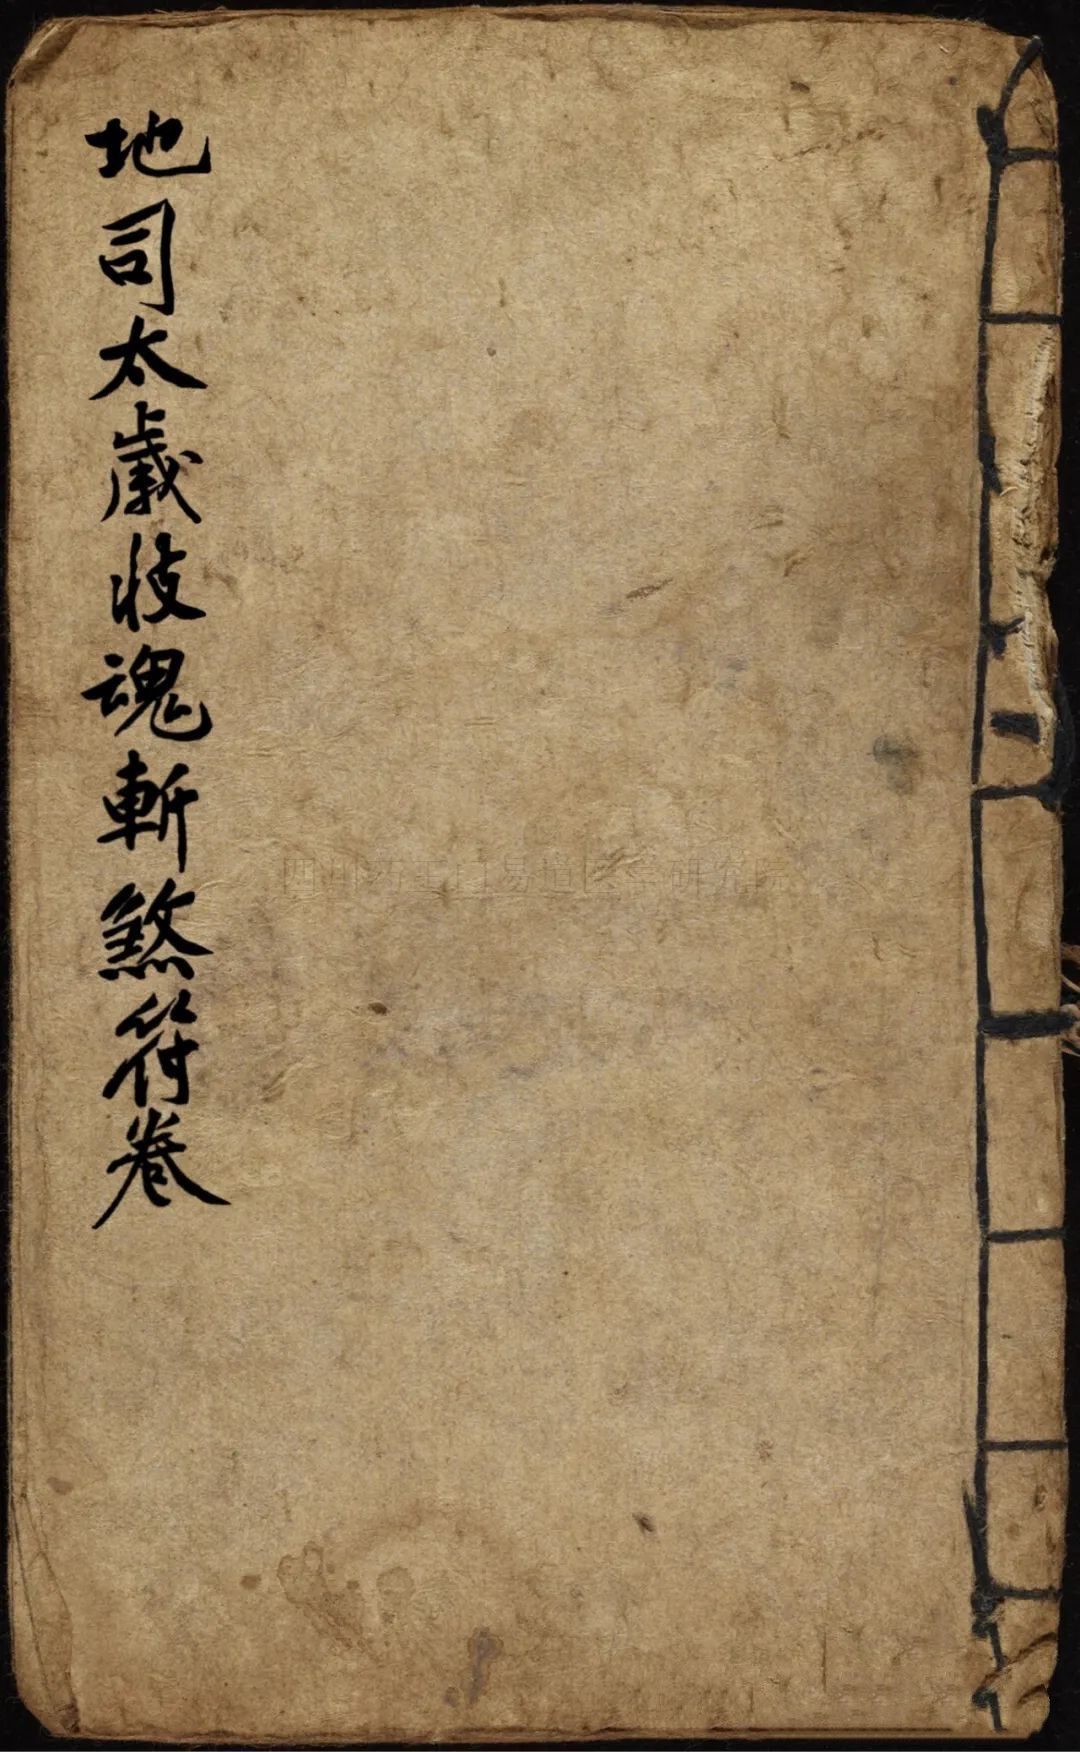 地司太歲收魂斬煞符卷
四川药王门易道医学研究院